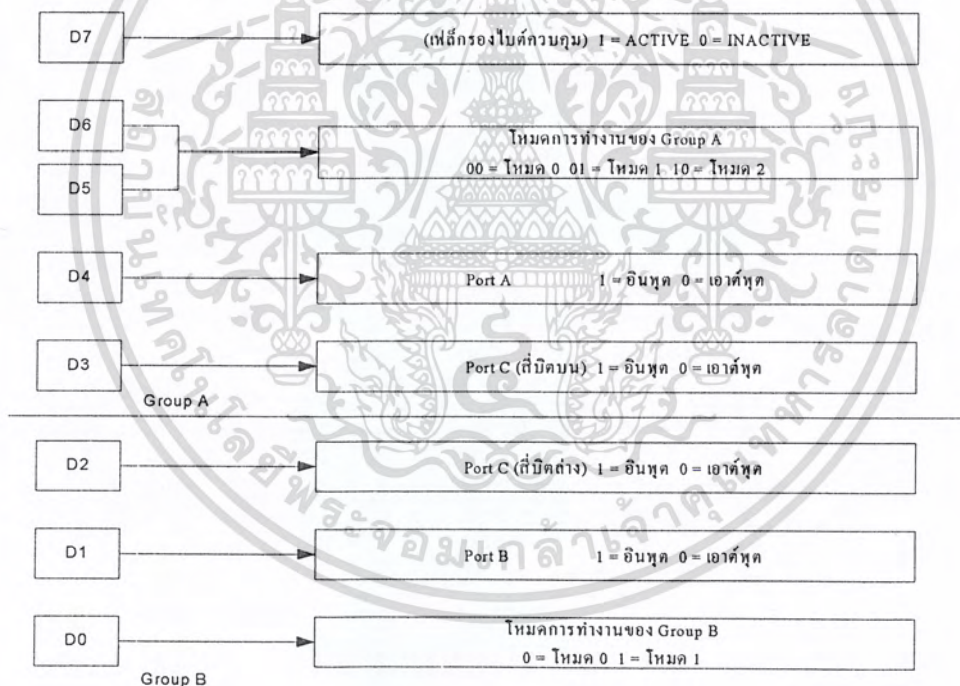 D7
(เฟล็กรองไบต์ควบคุม) 1 = ACTIVE 0 = INACTIVE
D6
D5
โหมดการทำงานของ Group A
00 = โหมด 0 01 = โหมด 1 10 = โหมด 2
D4
Port A 1 = อินพุต 0 = เอาต์พุต
D3
Port C (สี่บิตบน) 1 = อินพุต 0 = เอาต์พุต
Group A
D2
Port C (สี่บิตล่าง) 1 = อินพุต 0 = เอาต์พุต
D1
Port B 1 = อินพุต 0 = เอาต์พุต
D0
โหมดการทำงานของ Group B
0 = โหมด 0 1 = โหมด 1
Group B
สถาบันเทคโนโลยีพระจอมเกล้าเจ้าคุณทหารลาดกระบัง